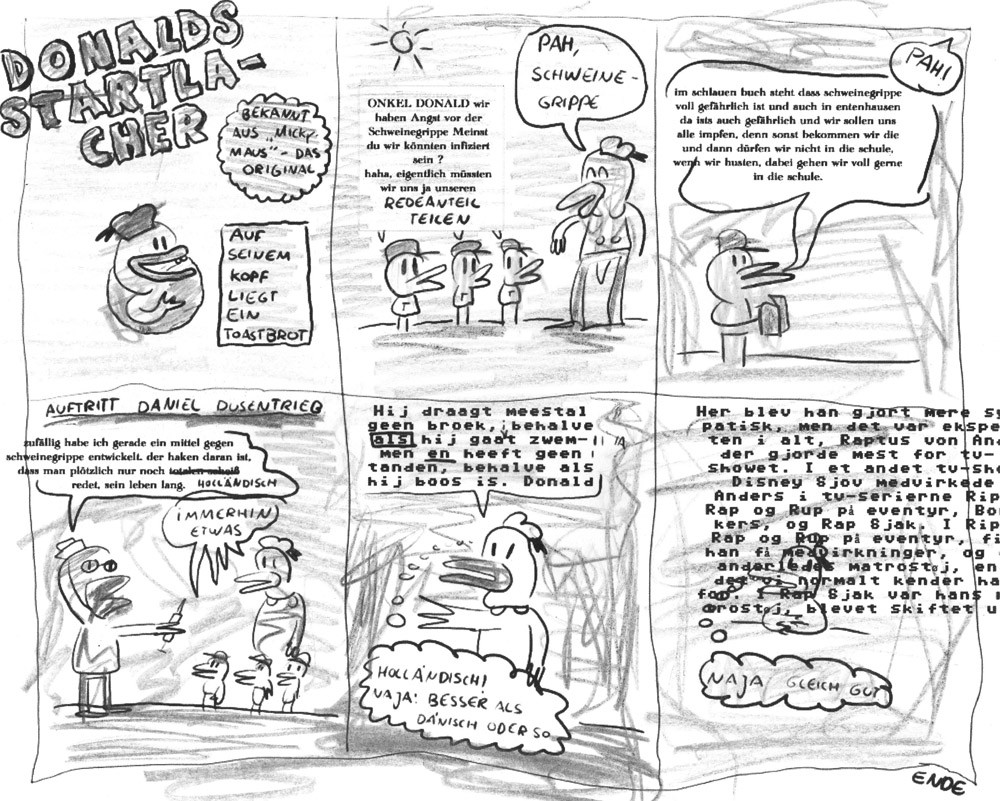 DONALDS
STARTLA-
CHER
BEKANNT
AUS „MICKY
MAUS" - DAS
ORIGINAL
AUF
SEINEM
KOPF
LIEGT
EIN
TOASTBROT
ONKEL DONALD wir
haben Angst vor der
Schweinegrippe Meinst
du wir könnten infiziert
sein ?
haha, eigentlich müssten
wir uns ja unseren
REDEANTEIL
TEILEN
PAH,
SCHWEINE-
GRIPPE
PAH!
im schlauen buch steht dass schweinegrippe
voll gefährlich ist und auch in entenhausen
da ists auch gefährlich und wir sollen uns
alle impfen, denn sonst bekommen wir die
und dann dürfen wir nicht in die schule,
wenn wir husten, dabei gehen wir voll gerne
in die schule.
AUFTRITT DANIEL DUSENTRIEB
zufällig habe ich gerade ein mittel gegen
schweinegrippe entwickelt. der haken daran ist,
dass man plötzlich nur noch totalen scheiß
redet, sein leben lang. HOLLÄNDISCH
IMMERHIN
ETWAS
Hij draagt meestal
geen broek, behalve
als hij gaat zwem-
men en heeft geen
tanden, behalve als
hij boos is. Donald
HOLLÄNDISCH!
NAJA! BESSER ALS
DÄNISCH ODER SO
Her blev han gjort mere sy
patisk, men det var ekspe
ten i alt, Raptus von And
der gjorde mest for tv-
showet. I et andet tv-sho
Disney Sjov medvirkede
Anders i tv-serierne Rip
Rap og Rup på eventyr, Bon
kers, og Rap Sjak. I Rip
Rap og Rup på eventyr, fi
han få medvirkninger, og
anderledes matrostøj, en
det vi normalt kender ha
for. I Rap Sjak var hans m
trostøj, blevet skiftet u
NAJA GLEICH GUT
ENDE